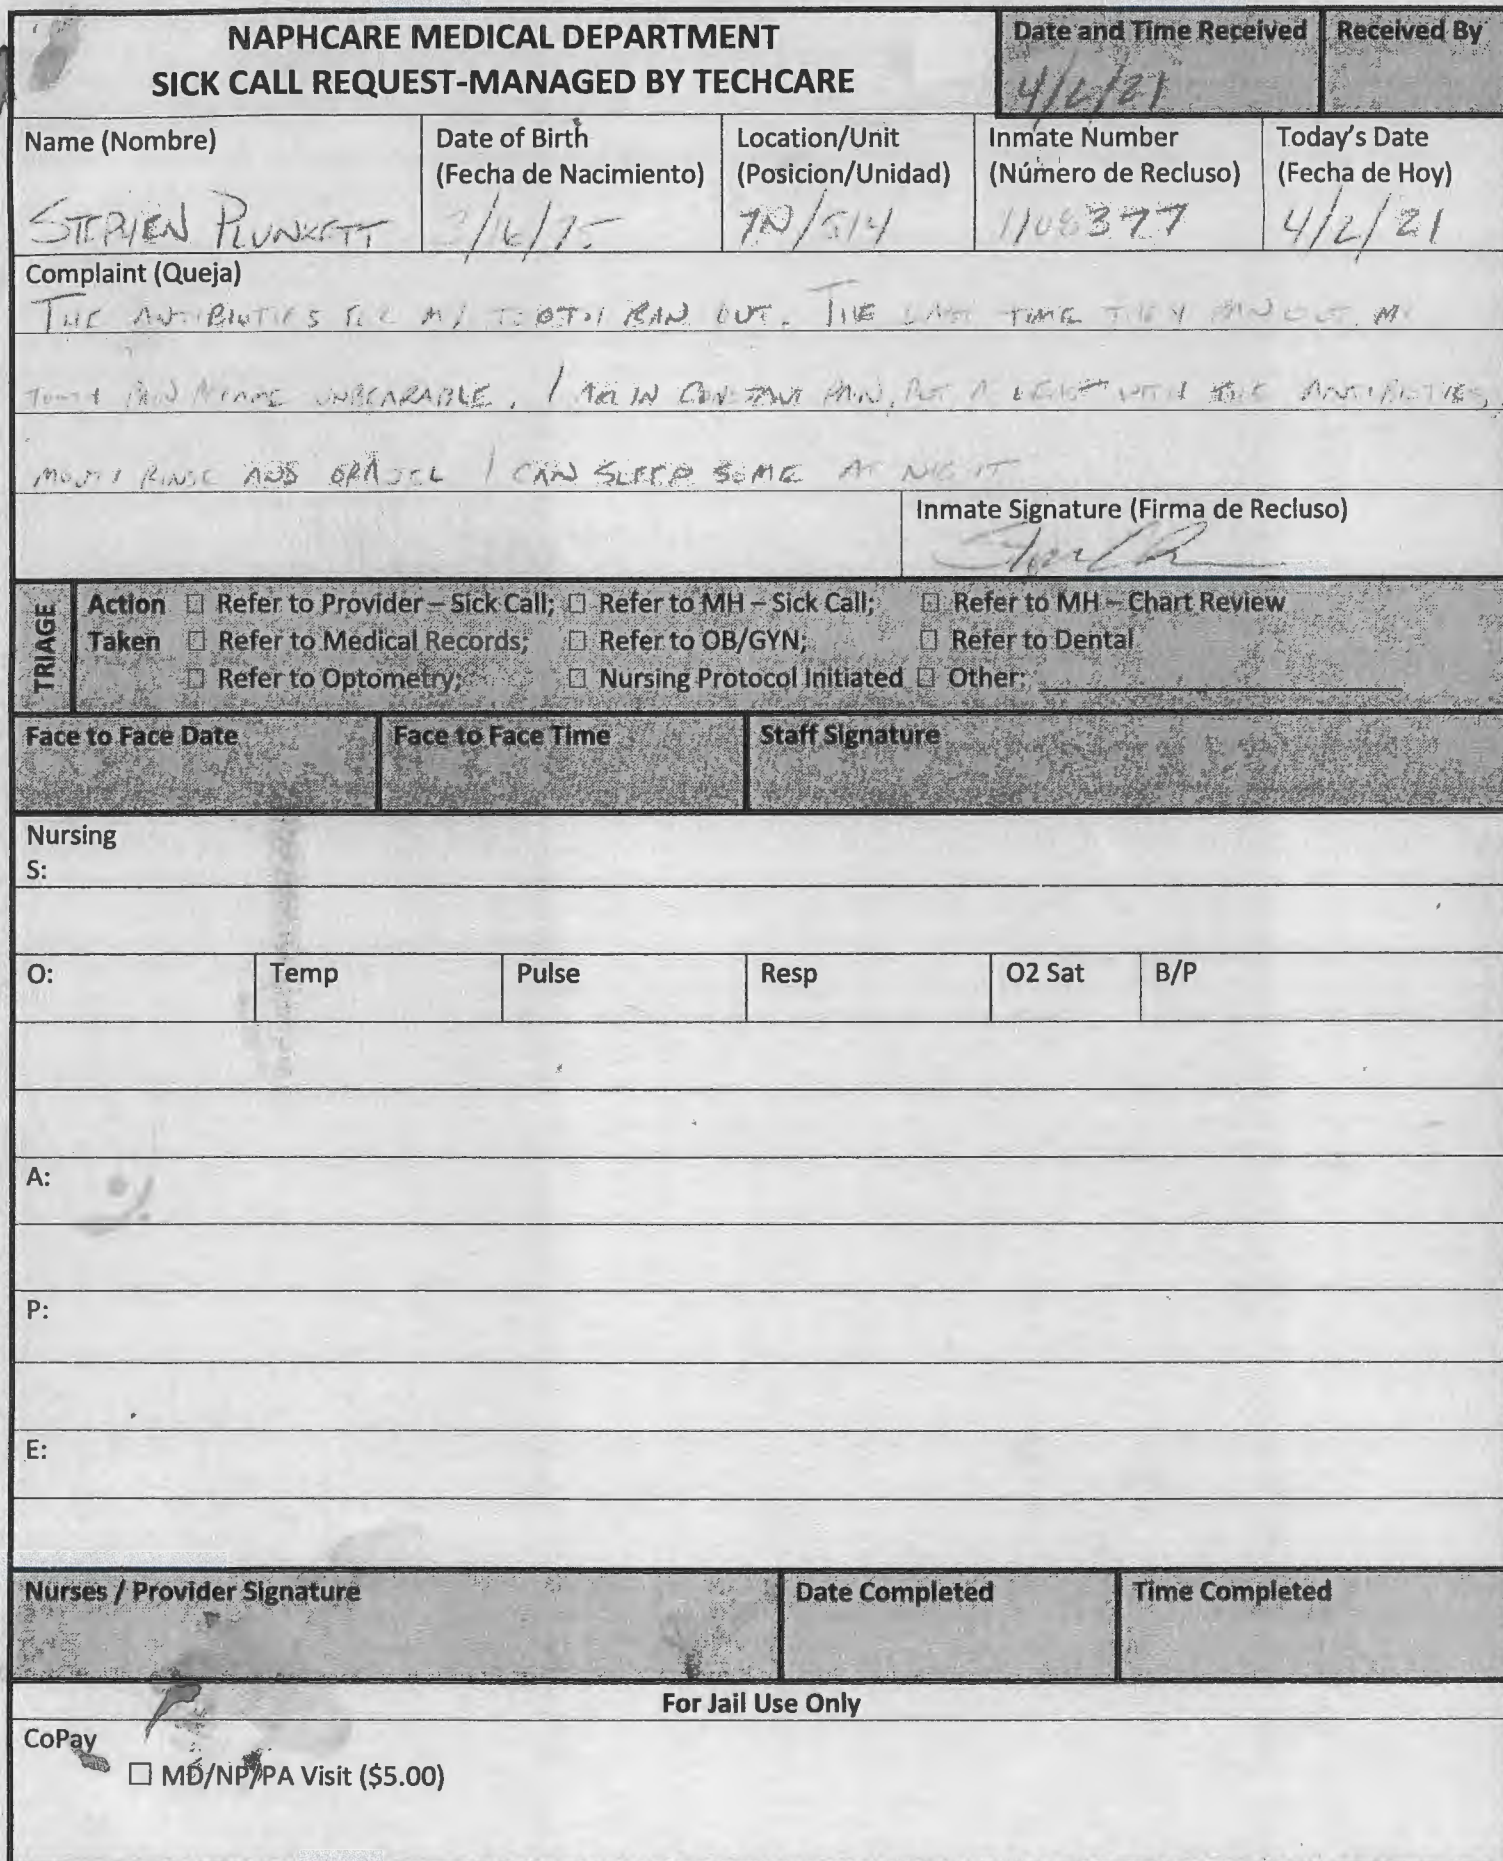 NAPHCARE MEDICAL DEPARTMENT
SICK CALL REQUEST-MANAGED BY TECHCARE
Date and Time Received
4/2/21
Received By
Name (Nombre)
STEPHEN PLUNKETT
Date of Birth
(Fecha de Nacimiento)
/16/75
Location/Unit
(Posicion/Unidad)
7N/514
Inmate Number
(Número de Recluso)
1108377
Today's Date
(Fecha de Hoy)
4/2/21
Complaint (Queja)
THE ANTIBIOTICS FOR MY TOOTH RAN OUT. THE LAST TIME THEY RAN OUT MY
TOOTH PAIN BECAME UNBEARABLE. I AM IN CONSTANT PAIN, BUT AT LEAST WITH THE ANTIBIOTICS,
MOUTH RINSE AND ORAJEL I CAN SLEEP SOME AT NIGHT
Inmate Signature (Firma de Recluso)
TRIAGE
Action Taken
☐ Refer to Provider – Sick Call; ☐ Refer to MH – Sick Call; ☐ Refer to MH – Chart Review
☐ Refer to Medical Records; ☐ Refer to OB/GYN; ☐ Refer to Dental
☐ Refer to Optometry; ☐ Nursing Protocol Initiated ☐ Other:
Face to Face Date
Face to Face Time
Staff Signature
Nursing
S:
O: Temp Pulse Resp O2 Sat B/P
A:
P:
E:
Nurses / Provider Signature
Date Completed
Time Completed
For Jail Use Only
CoPay
☐ MD/NP/PA Visit ($5.00)